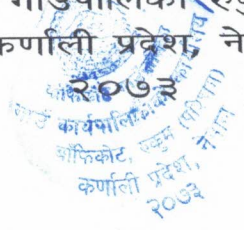 गाउँपालिका
कर्णाली प्रदेश, ने
२०७३
गाउँ कार्यपालिका
बाँफिकोट, रुकुम (पश्चिम)
कर्णाली प्रदेश, नेपाल
२०७३